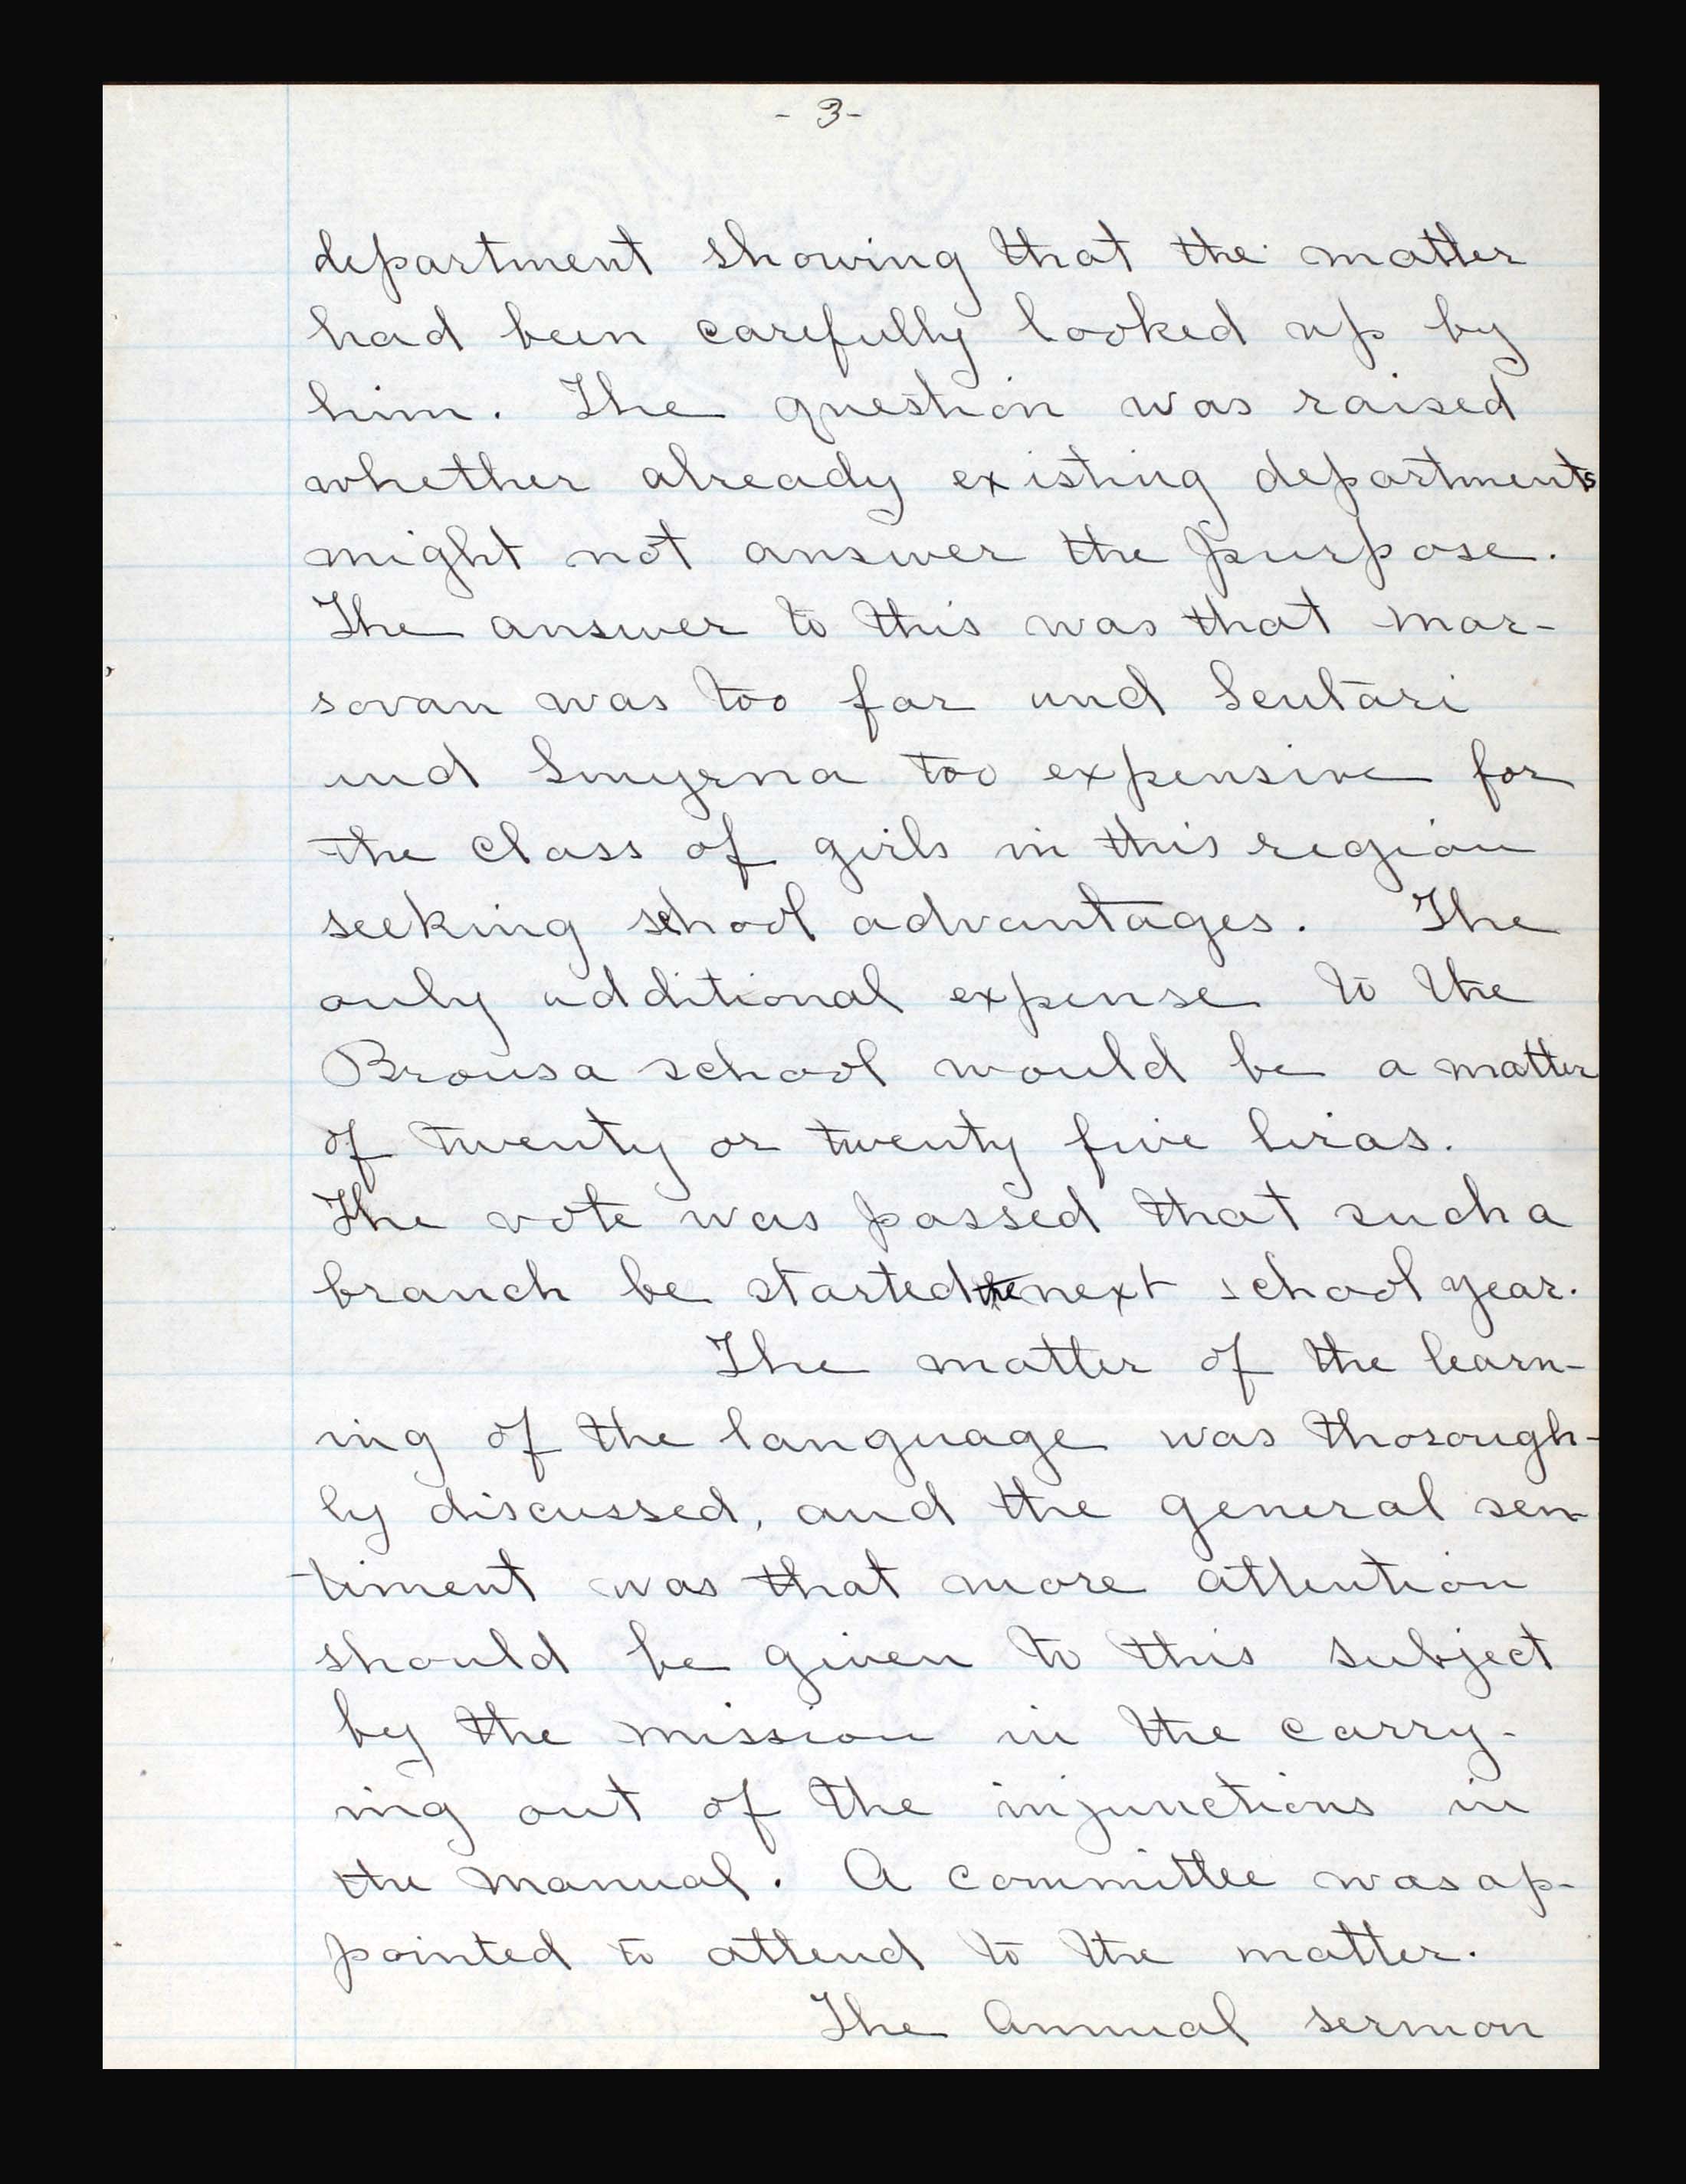 - 3 -
department showing that the matter
had been carefully looked up by
him. The question was raised
whether already existing departments
might not answer the purpose.
The answer to this was that Mar-
sovan was too far and Scutari
and Smyrna too expensive for
the class of girls in this region
seeking school advantages. The
only additional expense to the
Brousa school would be a matter
of twenty or twenty five liras.
The vote was passed that such a
branch be started the next school year.
The matter of the learn-
ing of the language was thorough-
ly discussed, and the general sen-
timent was that more attention
should be given to this subject
by the mission in the carry-
ing out of the injunctions in
the manual. A committee was ap-
pointed to attend to the matter.
The Annual sermon